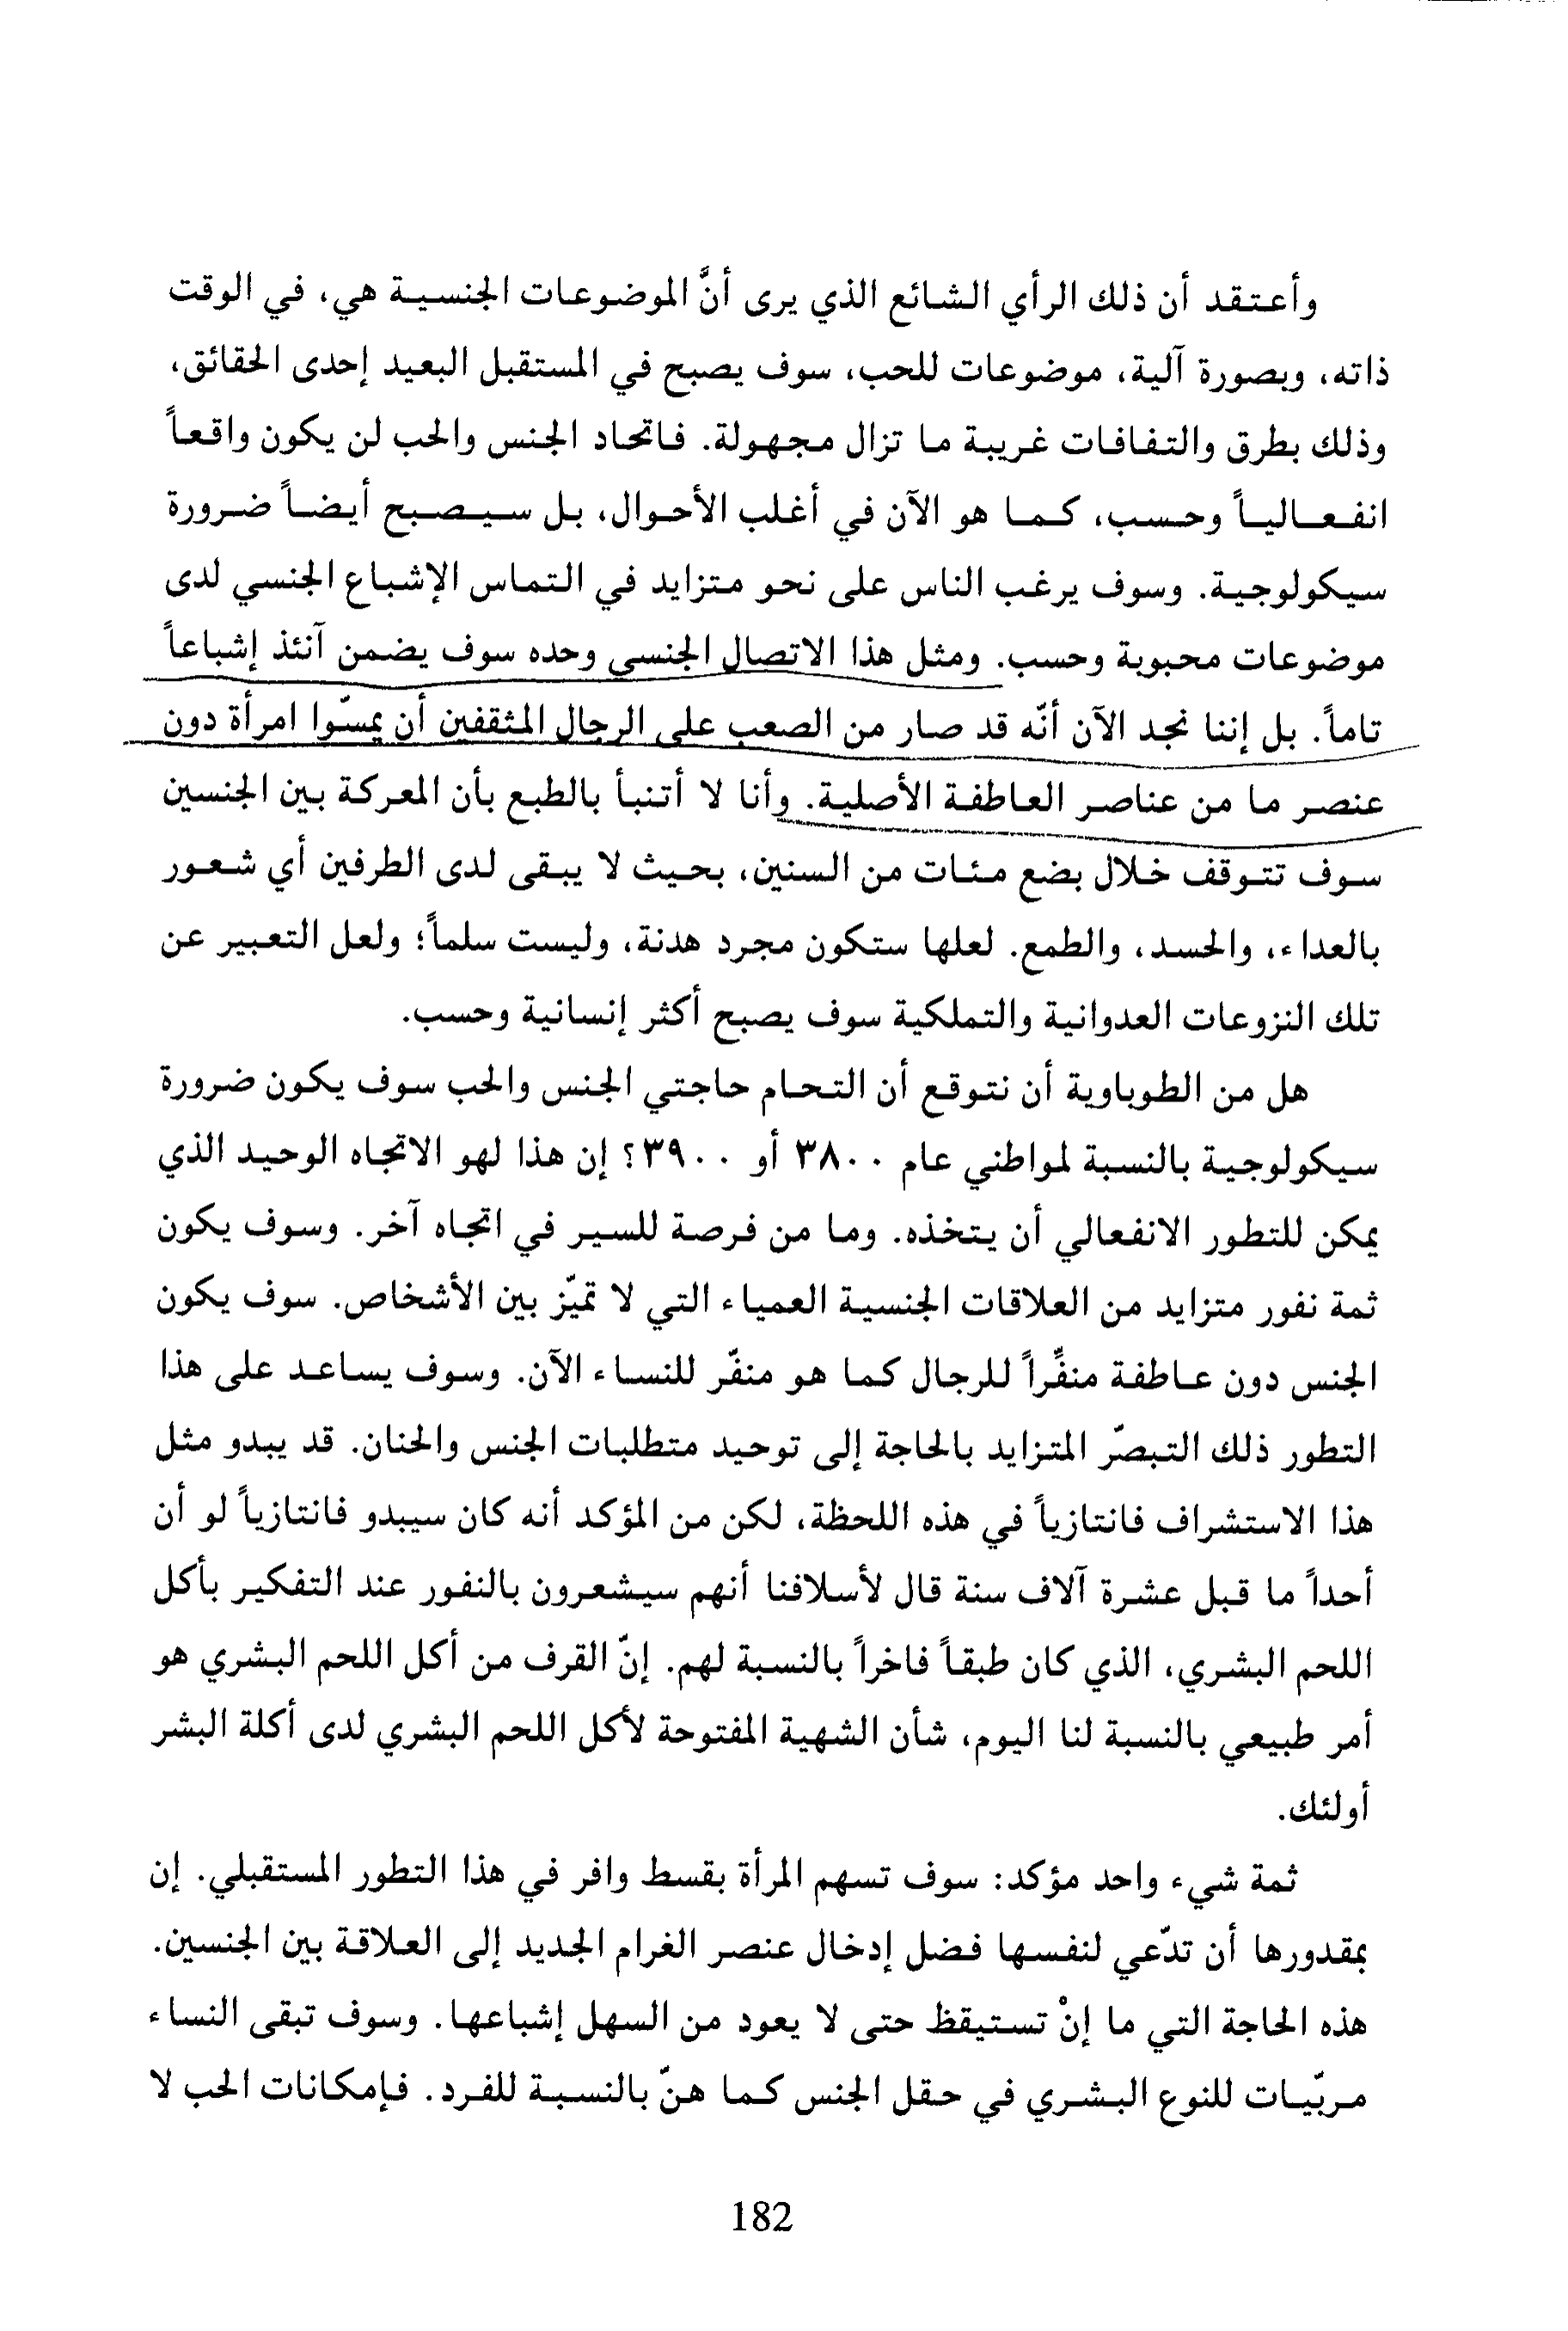 وأعتقد أن ذلك الرأي الشائع الذي يرى أنَّ الموضوعات الجنسية هي، في الوقت
ذاته، وبصورة آلية، موضوعات للحب، سوف يصبح في المستقبل البعيد إحدى الحقائق،
وذلك بطرق والتفافات غريبة ما تزال مجهولة. فاتحاد الجنس والحب لن يكون واقعاً
انفعالياً وحسب، كما هو الآن في أغلب الأحوال، بل سيصبح أيضاً ضرورة
سيكولوجية. وسوف يرغب الناس على نحو متزايد في التماس الإشباع الجنسي لدى
موضوعات محبوبة وحسب. ومثل هذا الاتصال الجنسي وحده سوف يضمن آنئذ إشباعاً
تاماً. بل إننا نجد الآن أنّه قد صار من الصعب على الرجال المثقفين أن يمسّوا امرأة دون
عنصر ما من عناصر العاطفة الأصلية. وأنا لا أتنبأ بالطبع بأن المعركة بين الجنسين
سوف تتوقف خلال بضع مئات من السنين، بحيث لا يبقى لدى الطرفين أي شعور
بالعداء، والحسد، والطمع. لعلها ستكون مجرد هدنة، وليست سلماً؛ ولعل التعبير عن
تلك النزوعات العدوانية والتملكية سوف يصبح أكثر إنسانية وحسب.
هل من الطوباوية أن نتوقع أن التحام حاجتي الجنس والحب سوف يكون ضرورة
سيكولوجية بالنسبة لمواطني عام ٣٨٠٠ أو ٣٩٠٠؟ إن هذا لهو الاتجاه الوحيد الذي
يمكن للتطور الانفعالي أن يتخذه. وما من فرصة للسير في اتجاه آخر. وسوف يكون
ثمة نفور متزايد من العلاقات الجنسية العمياء التي لا تميّز بين الأشخاص. سوف يكون
الجنس دون عاطفة منفِّراً للرجال كما هو منفّر للنساء الآن. وسوف يساعد على هذا
التطور ذلك التبصّر المتزايد بالحاجة إلى توحيد متطلبات الجنس والحنان. قد يبدو مثل
هذا الاستشراف فانتازياً في هذه اللحظة، لكن من المؤكد أنه كان سيبدو فانتازياً لو أن
أحداً ما قبل عشرة آلاف سنة قال لأسلافنا أنهم سيشعرون بالنفور عند التفكير بأكل
اللحم البشري، الذي كان طبقاً فاخراً بالنسبة لهم. إنّ القرف من أكل اللحم البشري هو
أمر طبيعي بالنسبة لنا اليوم، شأن الشهية المفتوحة لأكل اللحم البشري لدى أكلة البشر
أولئك.
ثمة شيء واحد مؤكد: سوف تسهم المرأة بقسط وافر في هذا التطور المستقبلي. إن
بمقدورها أن تدّعي لنفسها فضل إدخال عنصر الغرام الجديد إلى العلاقة بين الجنسين.
هذه الحاجة التي ما إنْ تستيقظ حتى لا يعود من السهل إشباعها. وسوف تبقى النساء
مربّيات للنوع البشري في حقل الجنس كما هنّ بالنسبة للفرد. فإمكانات الحب لا
182